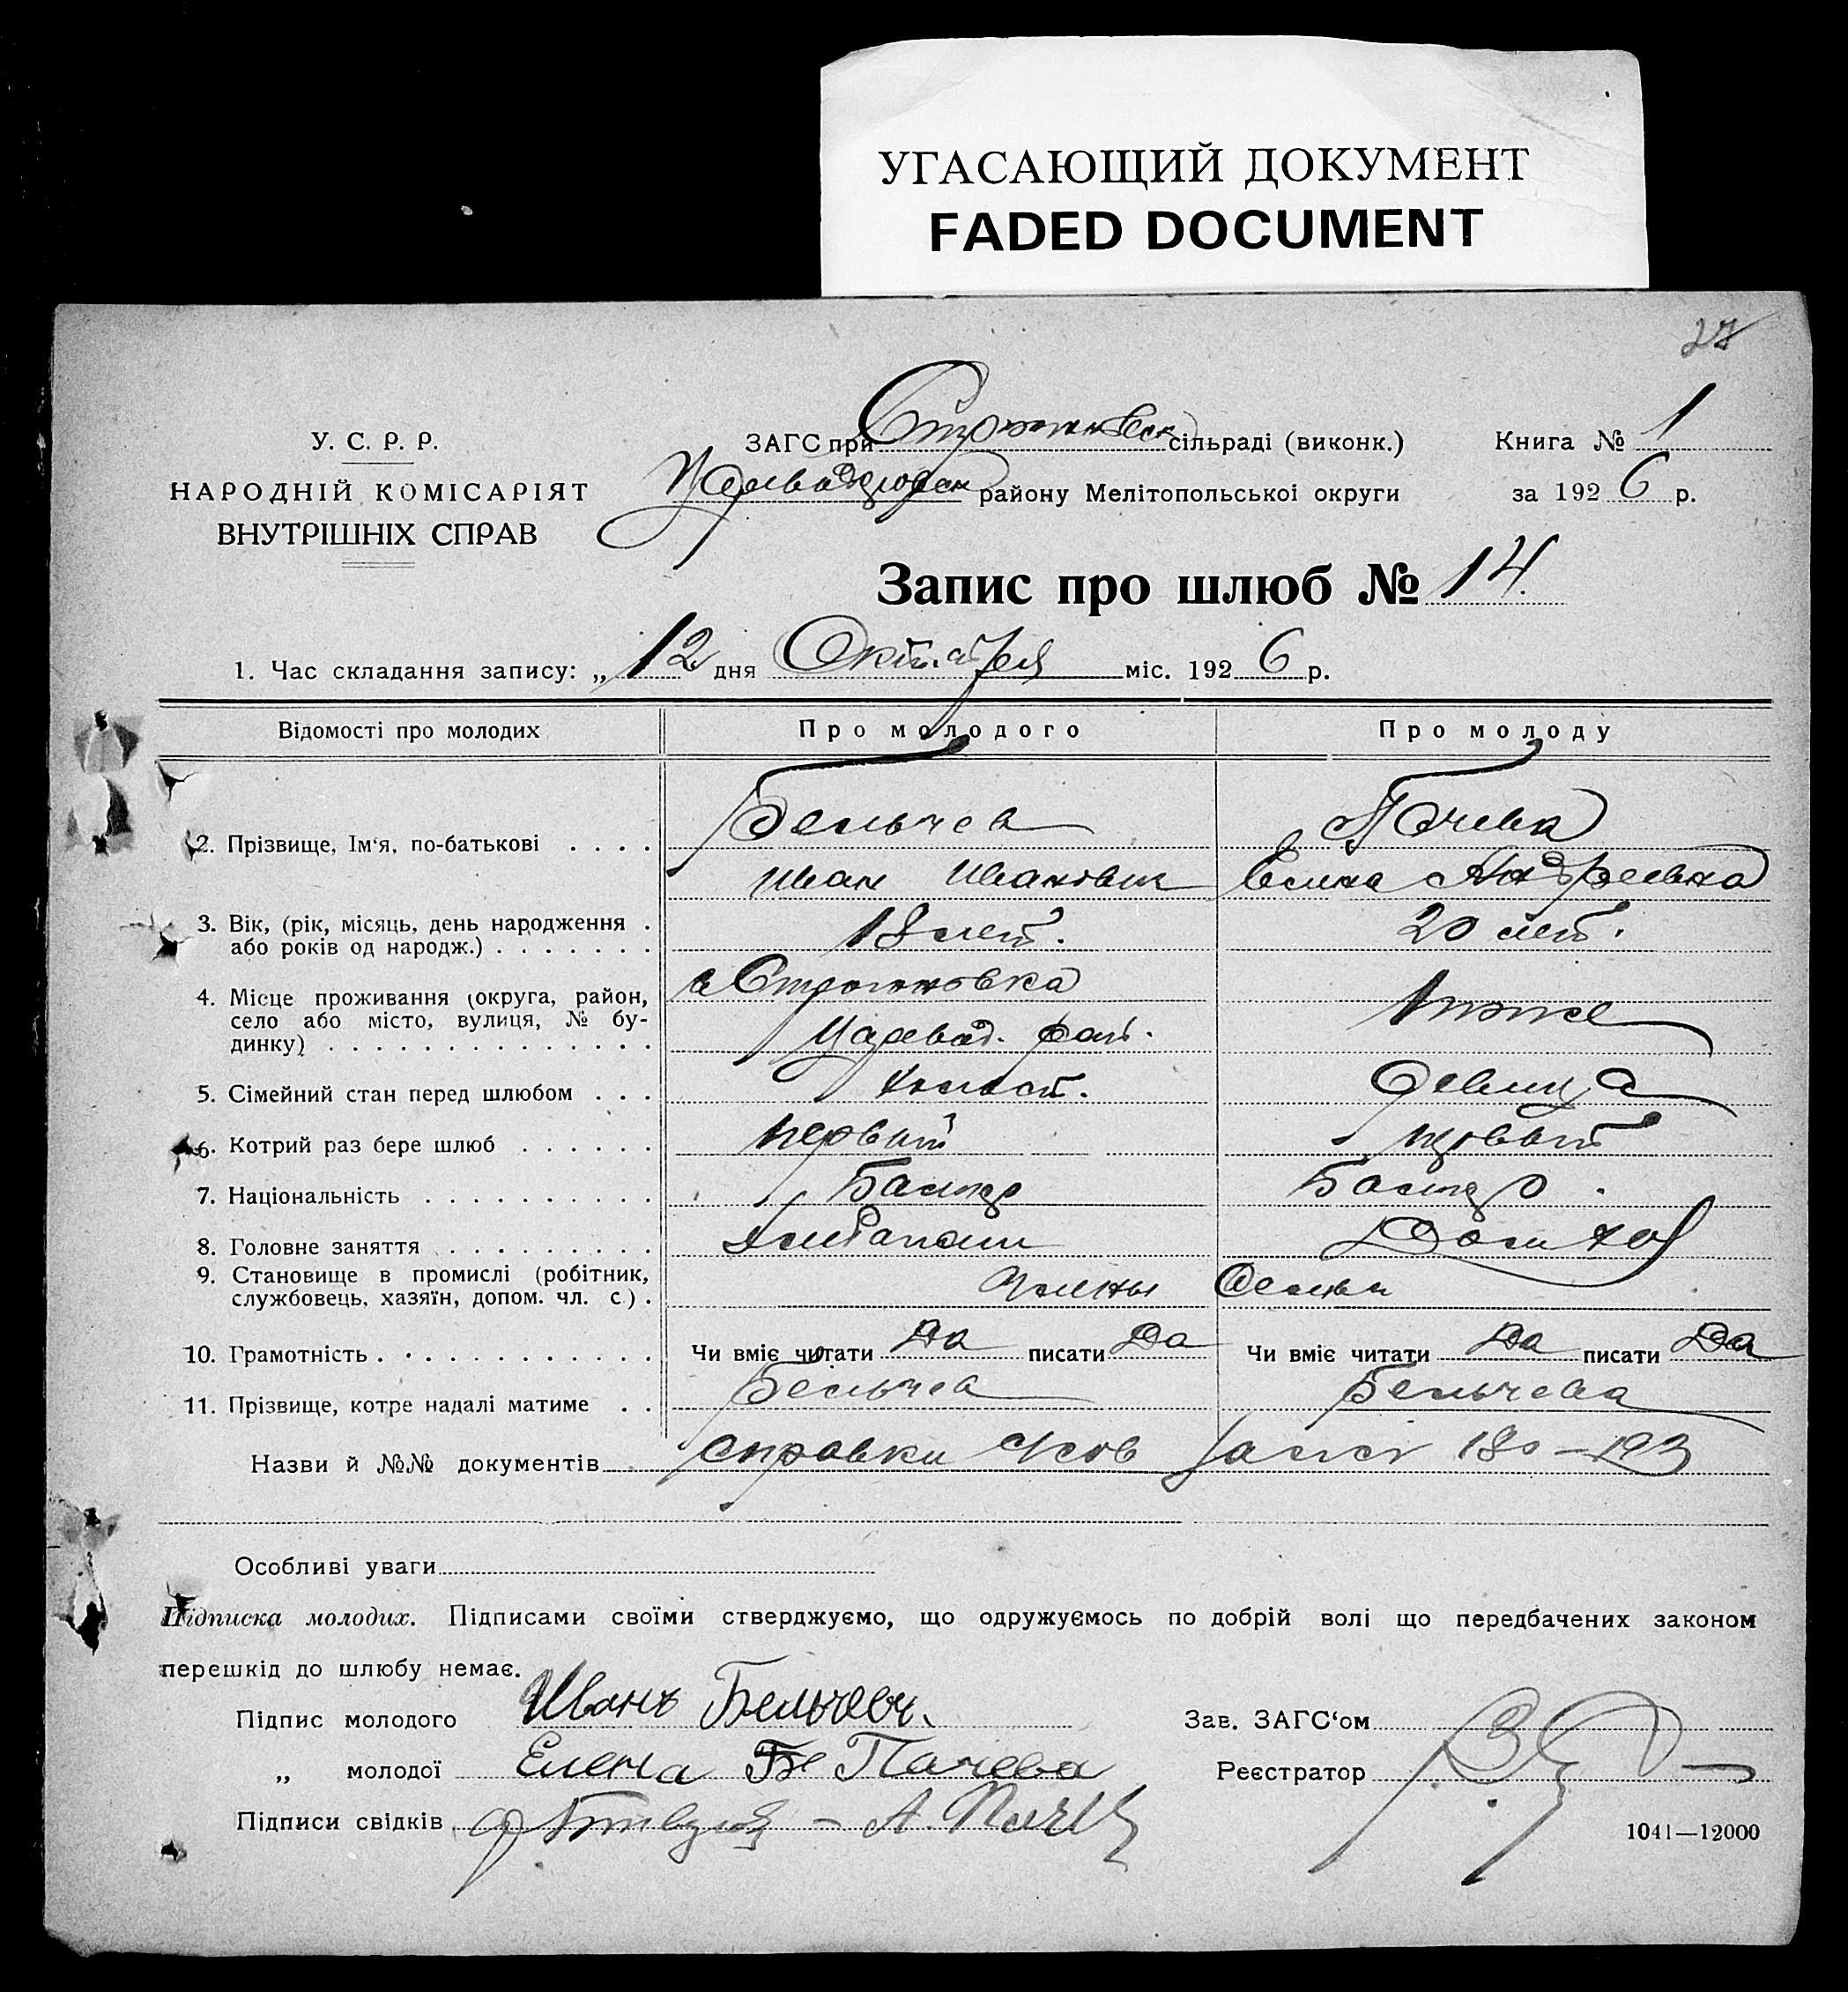 УГАСАЮЩИЙ ДОКУМЕНТ
FADED DOCUMENT
У. С. Р. Р.
НАРОДНІЙ КОМІСАРІЯТ
ВНУТРІШНІХ СПРАВ
ЗАГС при сільраді (виконк.) Книга № 1
району Мелітопольської округи за 1926 р.
Запис про шлюб № 14.
1. Час складання запису: „ 12 дня Октября міс. 1926 р.
Відомості про молодих Про молодого Про молоду
2. Прізвище, Ім'я, по-батькові . . . . Бельчев Пачева
Иван Иванович Елена Андреевна
3. Вік, (рік, місяць, день народження .
або років од народж.) . . . . . . . 18 лет. 20 лет.
4. Місце проживання (округа, район,
село або місто, вулиця, № бу-
динку) . . . . . . . . . . . . . .
с Строгановка
Царевод. рай.
тоже
5. Сімейний стан перед шлюбом . . . холост. Девица
6. Котрий раз бере шлюб . . . . . . первый первый
7. Національність . . . . . . . . . . Болгар Болгар
8. Головне заняття . . . . . . . . . Хлебопаш Домохоз
9. Становище в промислі (робітник,
службовець, хазяїн, допом. чл. с.) . Члены Семьи
10. Грамотність . . . . . . . . . . . . Чи вміє читати Да писати Да Чи вміє читати Да писати Да
11. Прізвище, котре надалі матиме . . Бельчев Бельчева
Назви й №№ документів справки 180–193
Особливі уваги
Підписка молодих. Підписами своїми стверджуємо, що одружуємось по добрій волі що передбачених законом
перешкід до шлюбу немає.
Підпис молодого Иванъ Бельчевъ. Зав. ЗАГС'ом
„ молодої Елена Бе Пачева Реєстратор
Підписи свідків
1041—12000